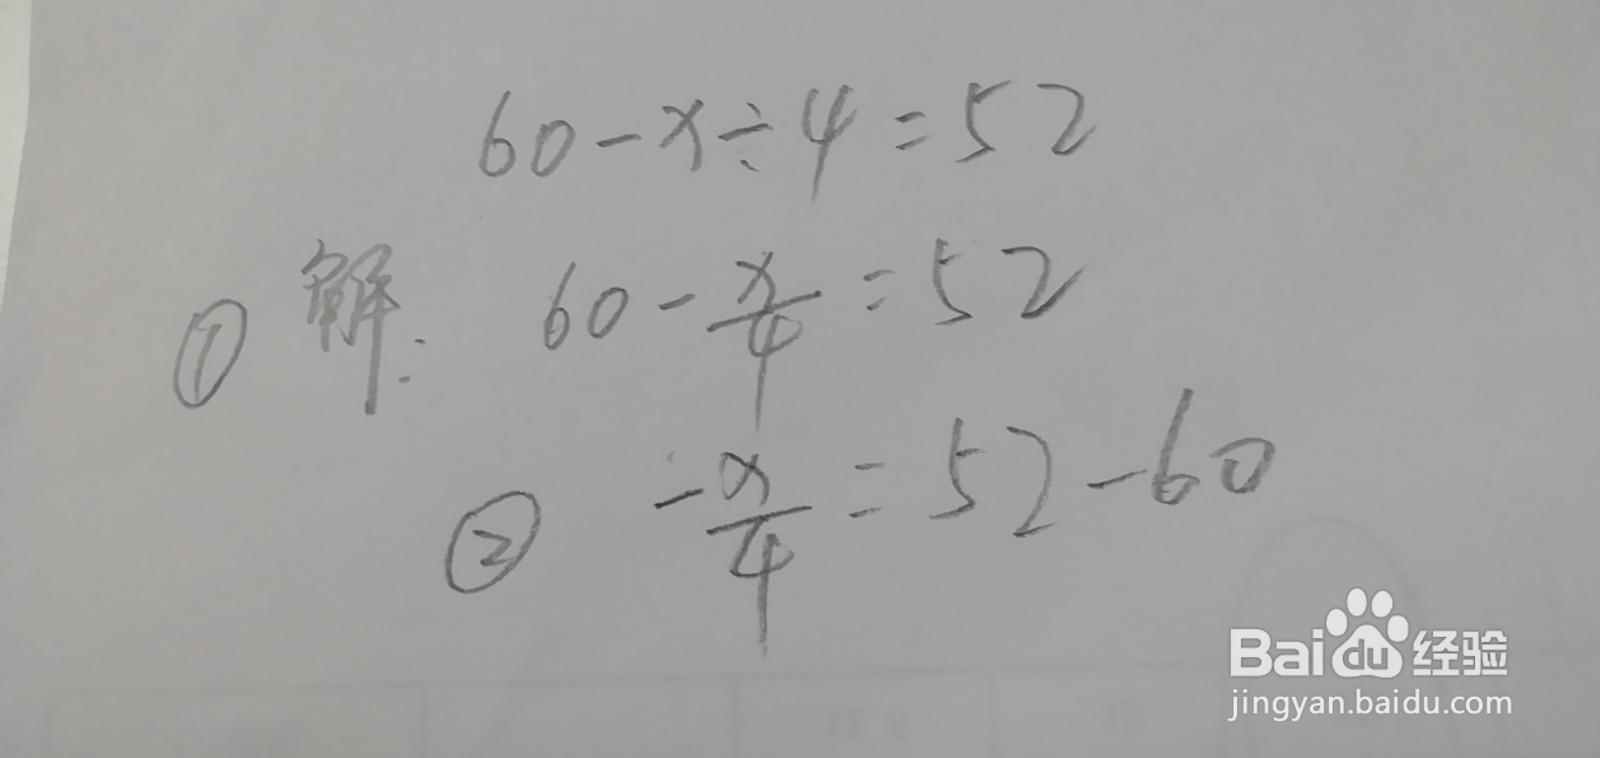 60-x÷4=52
① 解: 60-x/4=52
② -x/4=52-60
Baidu经验
jingyan.baidu.com